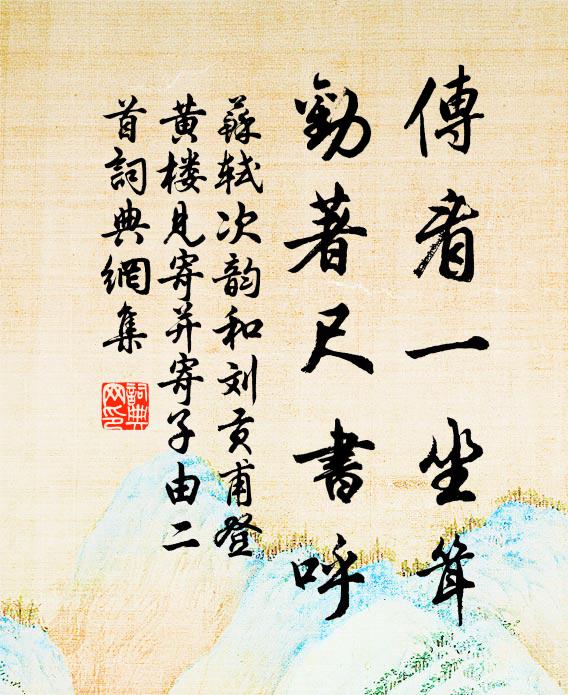 傳看一坐耸
勸著尺書呼
蘇軾次韵和刘贡甫登
黄楼見寄并寄子由二
首詞典網集
詞典網印